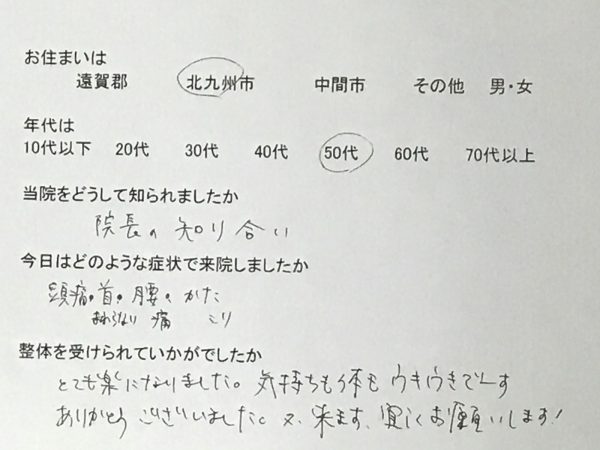 お住まいは
遠賀郡 北九州市 中間市 その他 男・女
年代は
10代以下 20代 30代 40代 50代 60代 70代以上
当院をどうして知られましたか
院長の知り合い
今日はどのような症状で来院しましたか
頭痛・首・腰・かた
まわらない 痛 こり
整体を受けられていかがでしたか
とても楽になりました。気持ちも体もウキウキでーす
ありがとうございました。又、来ます、宜しくお願いします!